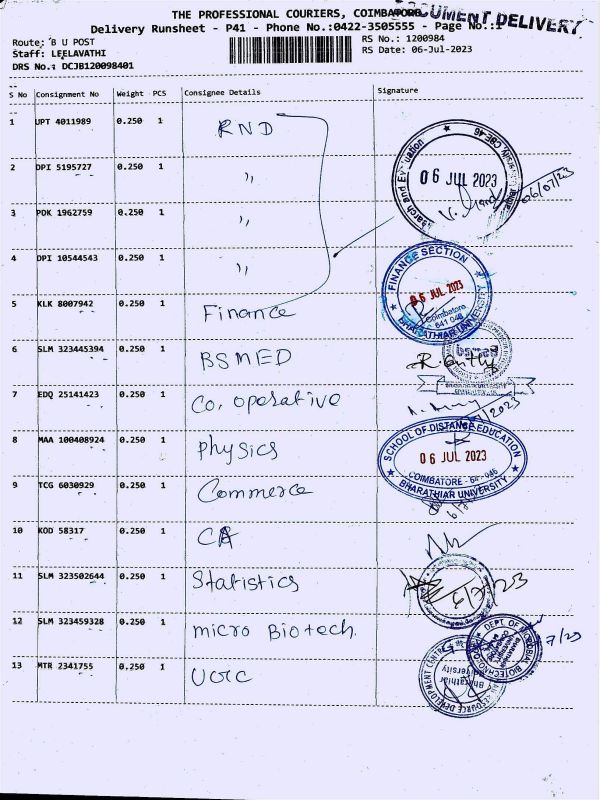 THE PROFESSIONAL COURIERS, COIMBATORE
DOCUMENT DELIVERY
Delivery Runsheet - P41 - Phone No.:0422-3505555 - Page No.:1
Route: B U POST
RS No.: 1200984
Staff: LEELAVATHI
RS Date: 06-Jul-2023
DRS No.: DCJB120098401
S No Consignment No Weight PCS Consignee Details Signature
1 UPT 4011989 0.250 1 RND
2 DPI 5195727 0.250 1 ,,
3 PDK 1962759 0.250 1 ,,
4 DPI 10544543 0.250 1 ,,
06 JUL 2023
06/07/23
5 KLK 8007942 0.250 1 Finance
FINANCE SECTION
06 JUL 2023
Coimbatore
641 046
BHARATHIAR UNIVERSITY
6 SLM 323445394 0.250 1 BSMED
bsmed
7 EDQ 25141423 0.250 1 Co. operative
8 MAA 100408924 0.250 1 physics
SCHOOL OF DISTANCE EDUCATION
06 JUL 2023
COIMBATORE - 641 046
BHARATHIAR UNIVERSITY
9 TCG 6030929 0.250 1 Commerce
10 KOD 58317 0.250 1 CA
11 SLM 323502644 0.250 1 Statistics
12 SLM 323459328 0.250 1 micro Biotech.
13 MTR 2341755 0.250 1 UGC